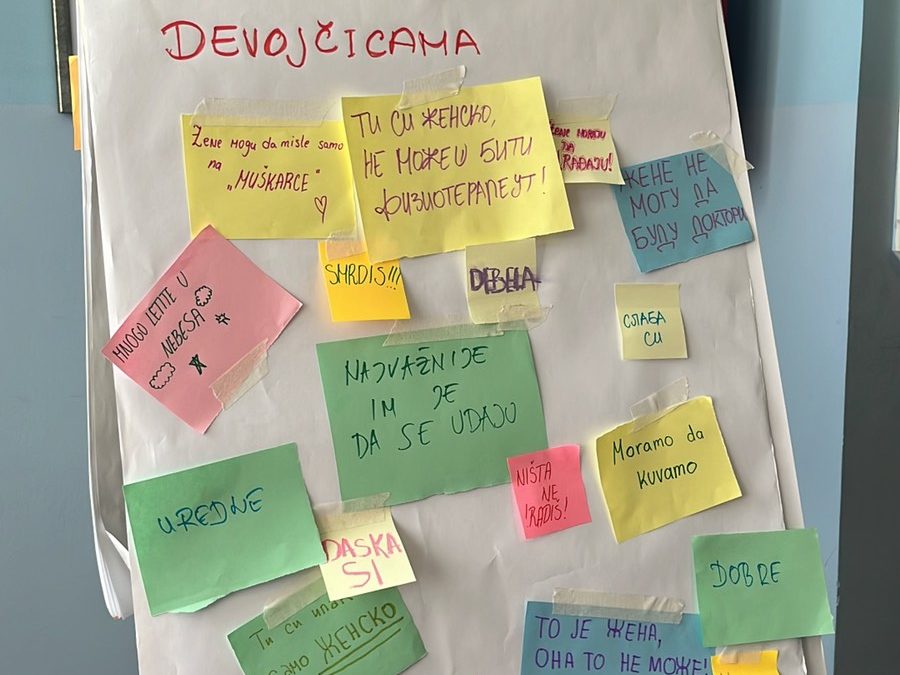 DEVOJČICAMA
Žene mogu da misle samo
na
„MUŠKARCE"
ТИ СИ ЖЕНСКО,
НЕ МОЖЕШ БИТИ
ФИЗИОТЕРАПЕУТ!
ŽENE MORAJU
DA
RAĐAJU!
ЖЕНЕ НЕ
МОГУ ДА
БУДУ ДОКТОРИ
SMRDIŠ!!!
DEBELA
MNOGO LETITE U
NEBESA
СЛАБА
СИ
NAJVAŽNIJE
IM JE
DA SE UDAJU
NIŠTA
NE
RADIŠ!
Moramo da
kuvamo
UREDNE
DASKA
SI
DOBRE
Ти си ипак
само ЖЕНСКО
ТО ЈЕ ЖЕНА,
ОНА ТО НЕ МОЖЕ!